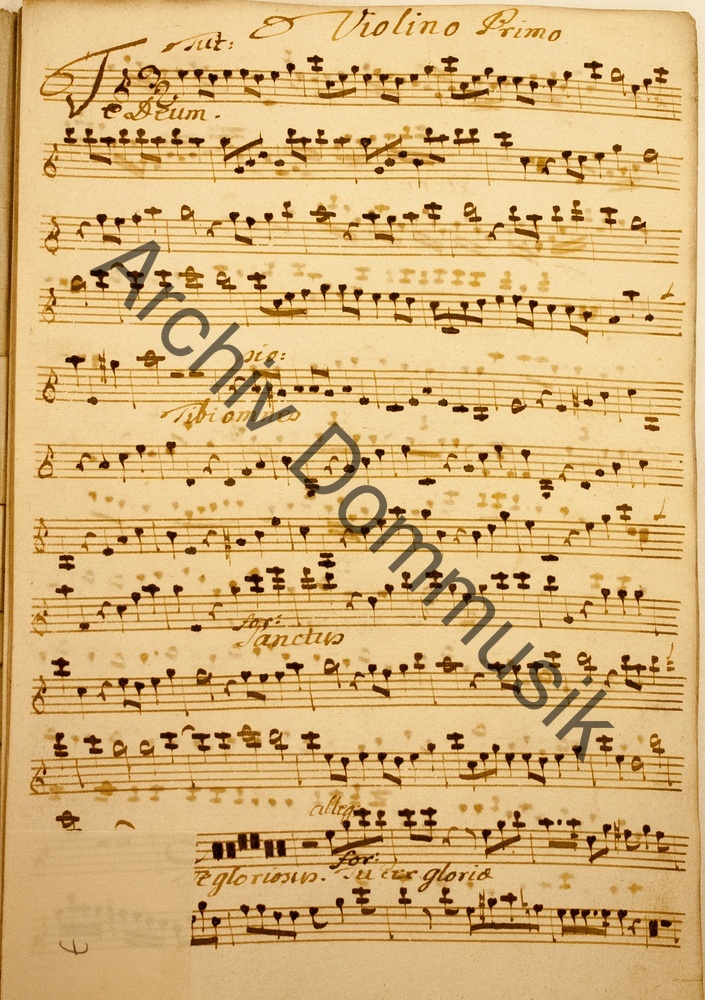 Violino Primo
Tut:
Te Deum.
pio:
Tibi omnes
for:
Sanctus
alleg:
for:
Te gloriosus. Tu Rex gloriæ
Archiv Dommusik